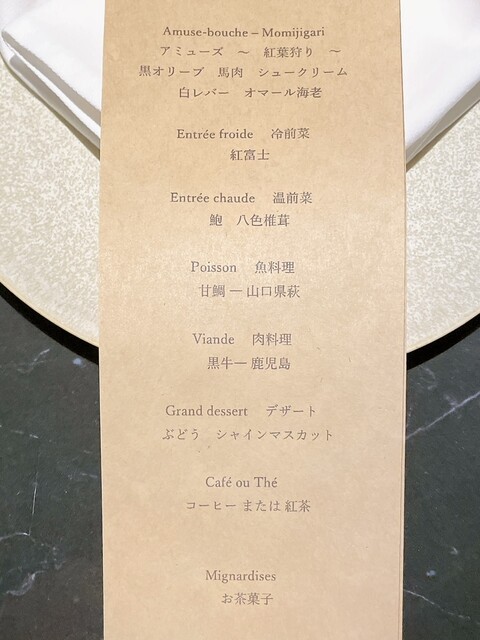 Amuse-bouche – Momijigari
アミューズ ～ 紅葉狩り ～
黒オリーブ 馬肉 シュークリーム
白レバー オマール海老
Entrée froide 冷前菜
紅富士
Entrée chaude 温前菜
鮑 八色椎茸
Poisson 魚料理
甘鯛 ― 山口県萩
Viande 肉料理
黒牛― 鹿児島
Grand dessert デザート
ぶどう シャインマスカット
Café ou Thé
コーヒー または 紅茶
Mignardises
お茶菓子